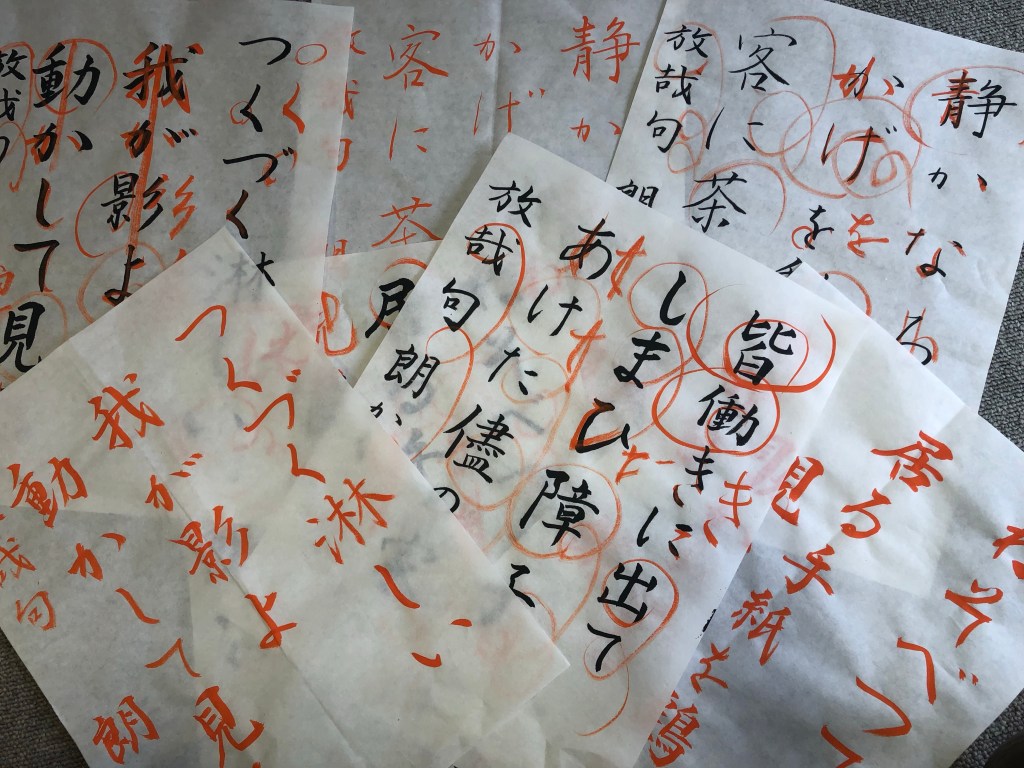 静かなる
がげを
客に茶
放哉句 朗
静か
かげ
客に茶
放哉句
つくづく
我が影よ
動かして見
放哉の
皆働きに出て
しまひ障
あけた儘の
放哉句 朗か
つくづく淋しい
我が影よ
動かして見
哉句 朗
そべつ
居る手紙を鶏
見